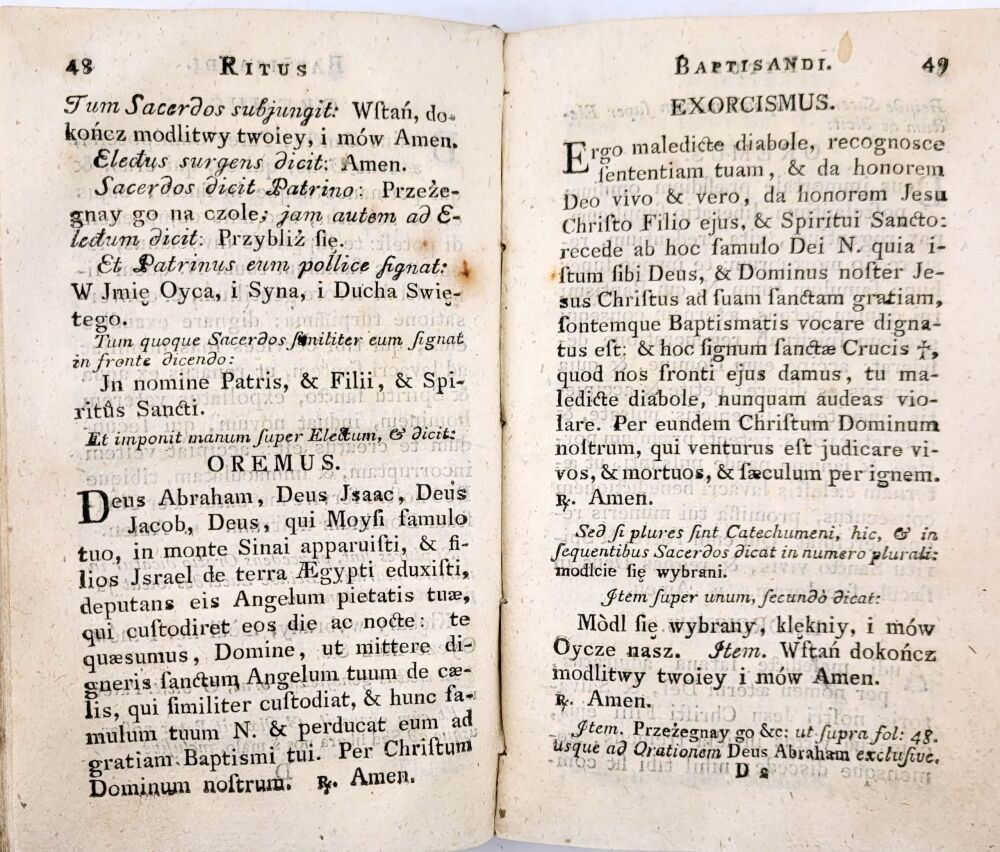 48 RITUS
Tum Sacerdos subjungit: Wſtań, do-
kończ modlitwy twoiey, i mów Amen.
Electus surgens dicit: Amen.
Sacerdos dicit Patrino: Przeże-
gnay go na czole; jam autem ad E-
lectum dicit: Przybliż ſię.
Et Patrinus eum pollice ſignat:
W Jmię Oyca, i Syna, i Ducha Swię-
tego.
Tum quoque Sacerdos ſimiliter eum ſignat
in fronte dicendo:
Jn nomine Patris, & Filii, & Spi-
ritûs Sancti.
Et imponit manum ſuper Electum, & dicit:
OREMUS.
Deus Abraham, Deus Jsaac, Deus
Jacob, Deus, qui Moyſi famulo
tuo, in monte Sinai apparuiſti, & fi-
lios Jsrael de terra Ægypti eduxiſti,
deputans eis Angelum pietatis tuæ,
qui cuſtodiret eos die ac nocte: te
quæsumus, Domine, ut mittere di-
gneris ſanctum Angelum tuum de cæ-
lis, qui ſimiliter cuſtodiat, & hunc fa-
mulum tuum N. & perducat eum ad
gratiam Baptismi tui. Per Chriſtum
Dominum noſtrum. ℟. Amen.
BAPTISANDI. 49
EXORCISMUS.
Ergo maledicte diabole, recognosce
ſententiam tuam, & da honorem
Deo vivo & vero, da honorem Jesu
Chriſto Filio ejus, & Spiritui Sancto:
recede ab hoc famulo Dei N. quia i-
ſtum ſibi Deus, & Dominus noſter Je-
sus Chriſtus ad ſuam ſanctam gratiam,
fontemque Baptismatis vocare digna-
tus eſt: & hoc ſignum ſanctæ Crucis ✝,
quod nos fronti ejus damus, tu ma-
ledicte diabole, nunquam audeas vio-
lare. Per eundem Chriſtum Dominum
noſtrum, qui venturus eſt judicare vi-
vos, & mortuos, & ſæculum per ignem.
℟. Amen.
Sed ſi plures ſint Catechumeni, hic, & in
ſequentibus Sacerdos dicat in numero plurali:
modlcie ſię wybrani.
Jtem ſuper unum, ſecundò dicat:
Mòdl ſię wybrany, klękniy, i mów
Oycze nasz. Jtem. Wſtań dokończ
modlitwy twoiey i mów Amen.
℟. Amen.
Jtem. Przeżegnay go &c: ut ſupra fol: 48.
usque ad Orationem Deus Abraham excluſive.
D 2